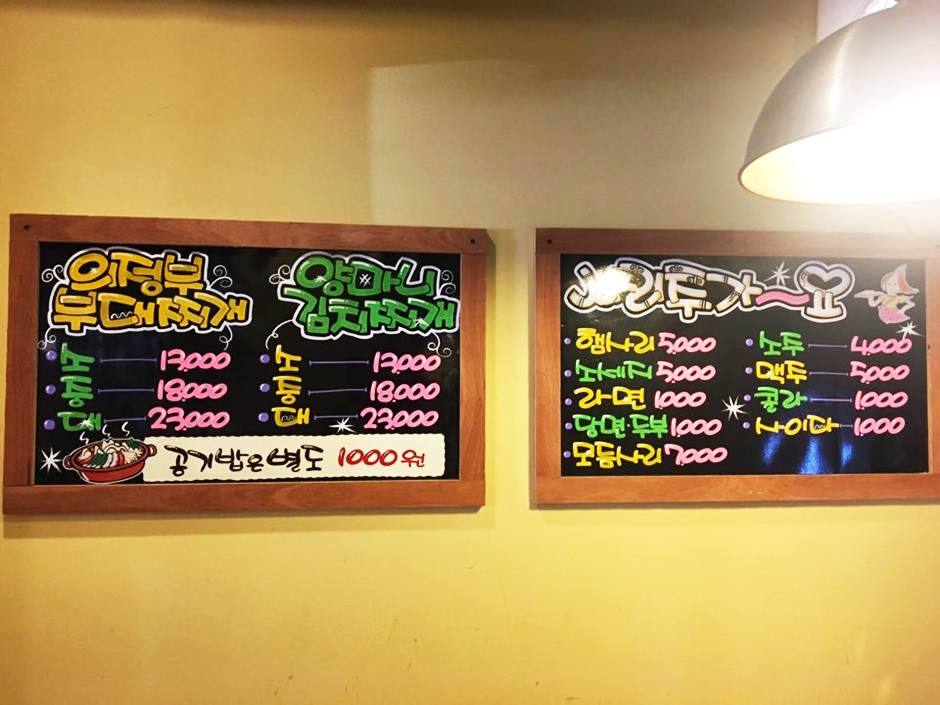 의정부
부대찌개
소 13,000
중 18,000
대 23,000
양마니
김치찌개
소 13,000
중 18,000
대 23,000
공기밥은 별도 1000원
사리추가~요
햄사리 5,000
소세지 5,000
라면 1,000
당면 두부 1,000
모듬사리 7,000
소주 4,000
맥주 5,000
콜라 1,000
사이다 1,000